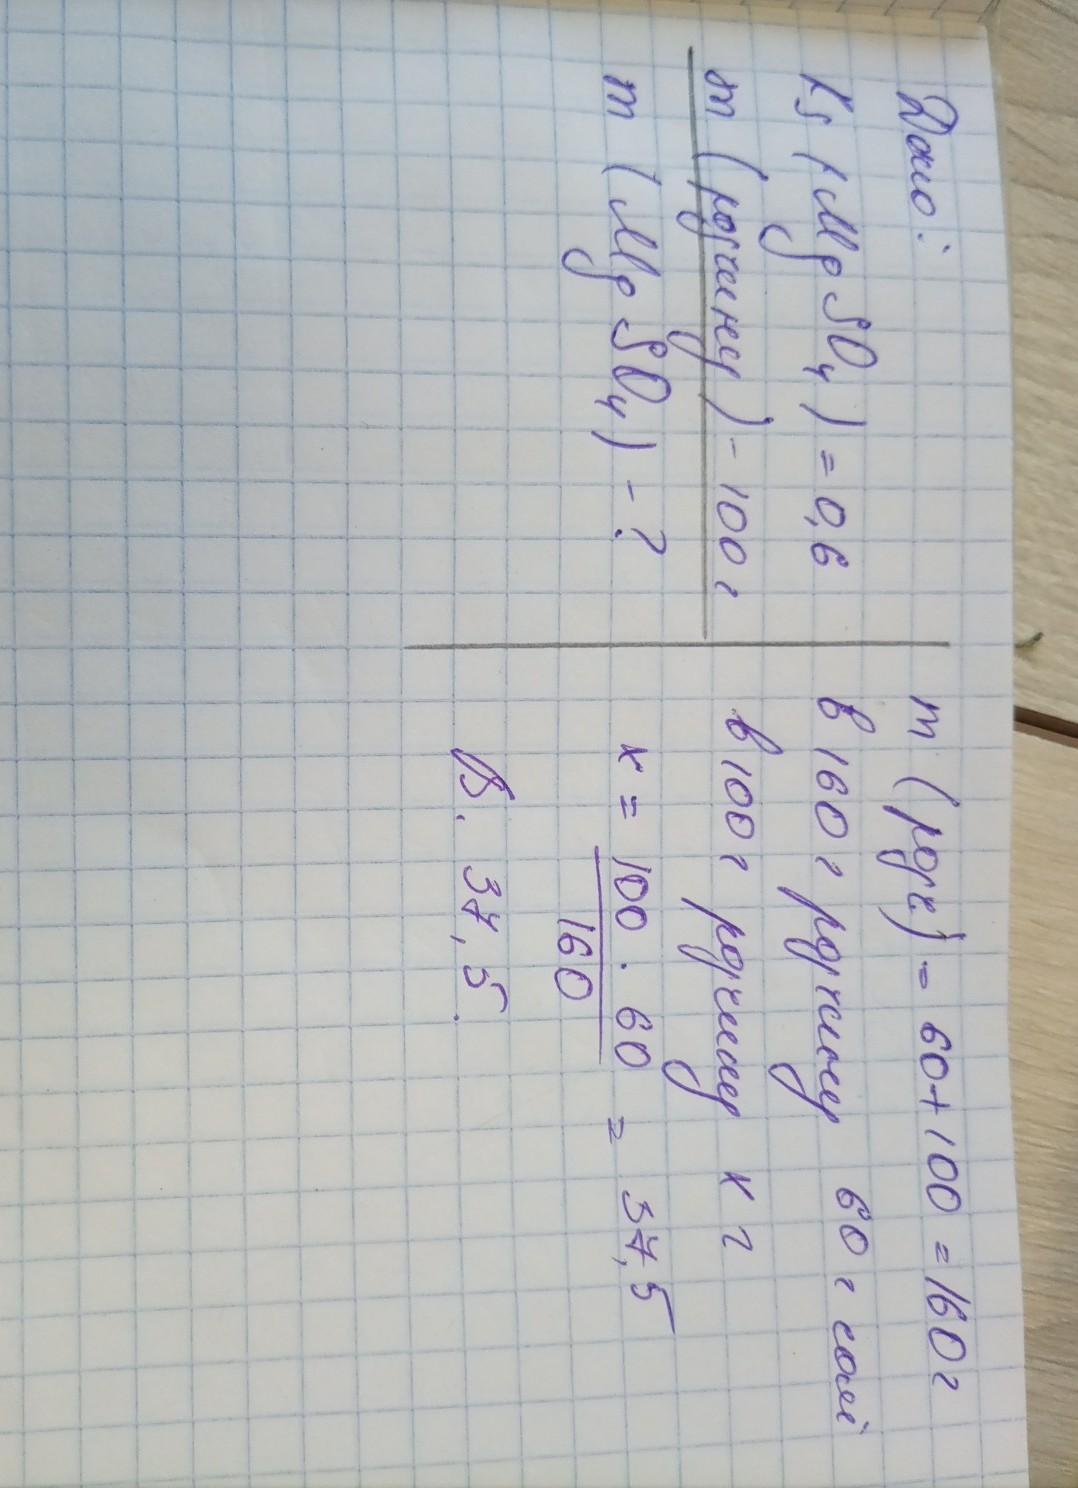 Дано:
Ks (MgSO₄) = 0,6
m (розчину) - 100 г
m (MgSO₄) - ?
m (розч) = 60 + 100 = 160 г
в 160 г розчину 60 г солі
в 100 г розчину x г
x = 100 · 60 / 160 = 37,5
В. 37,5.